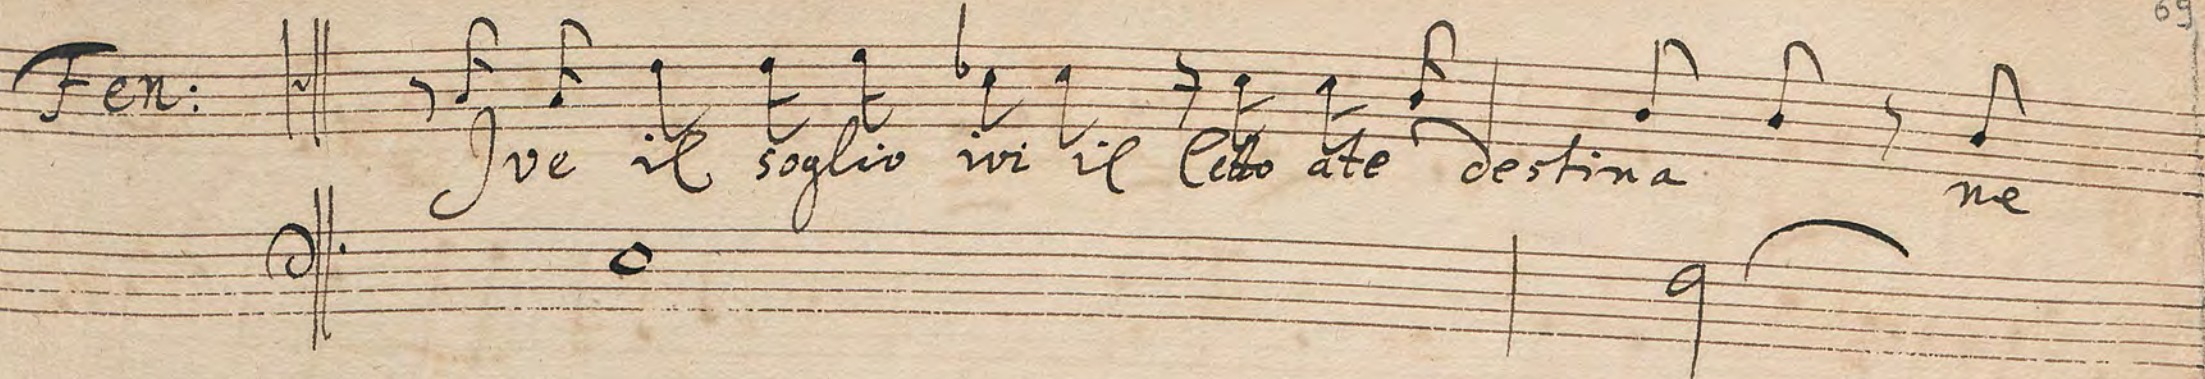 69
Fen:
Ive il soglio ivi il letto ate destina ne